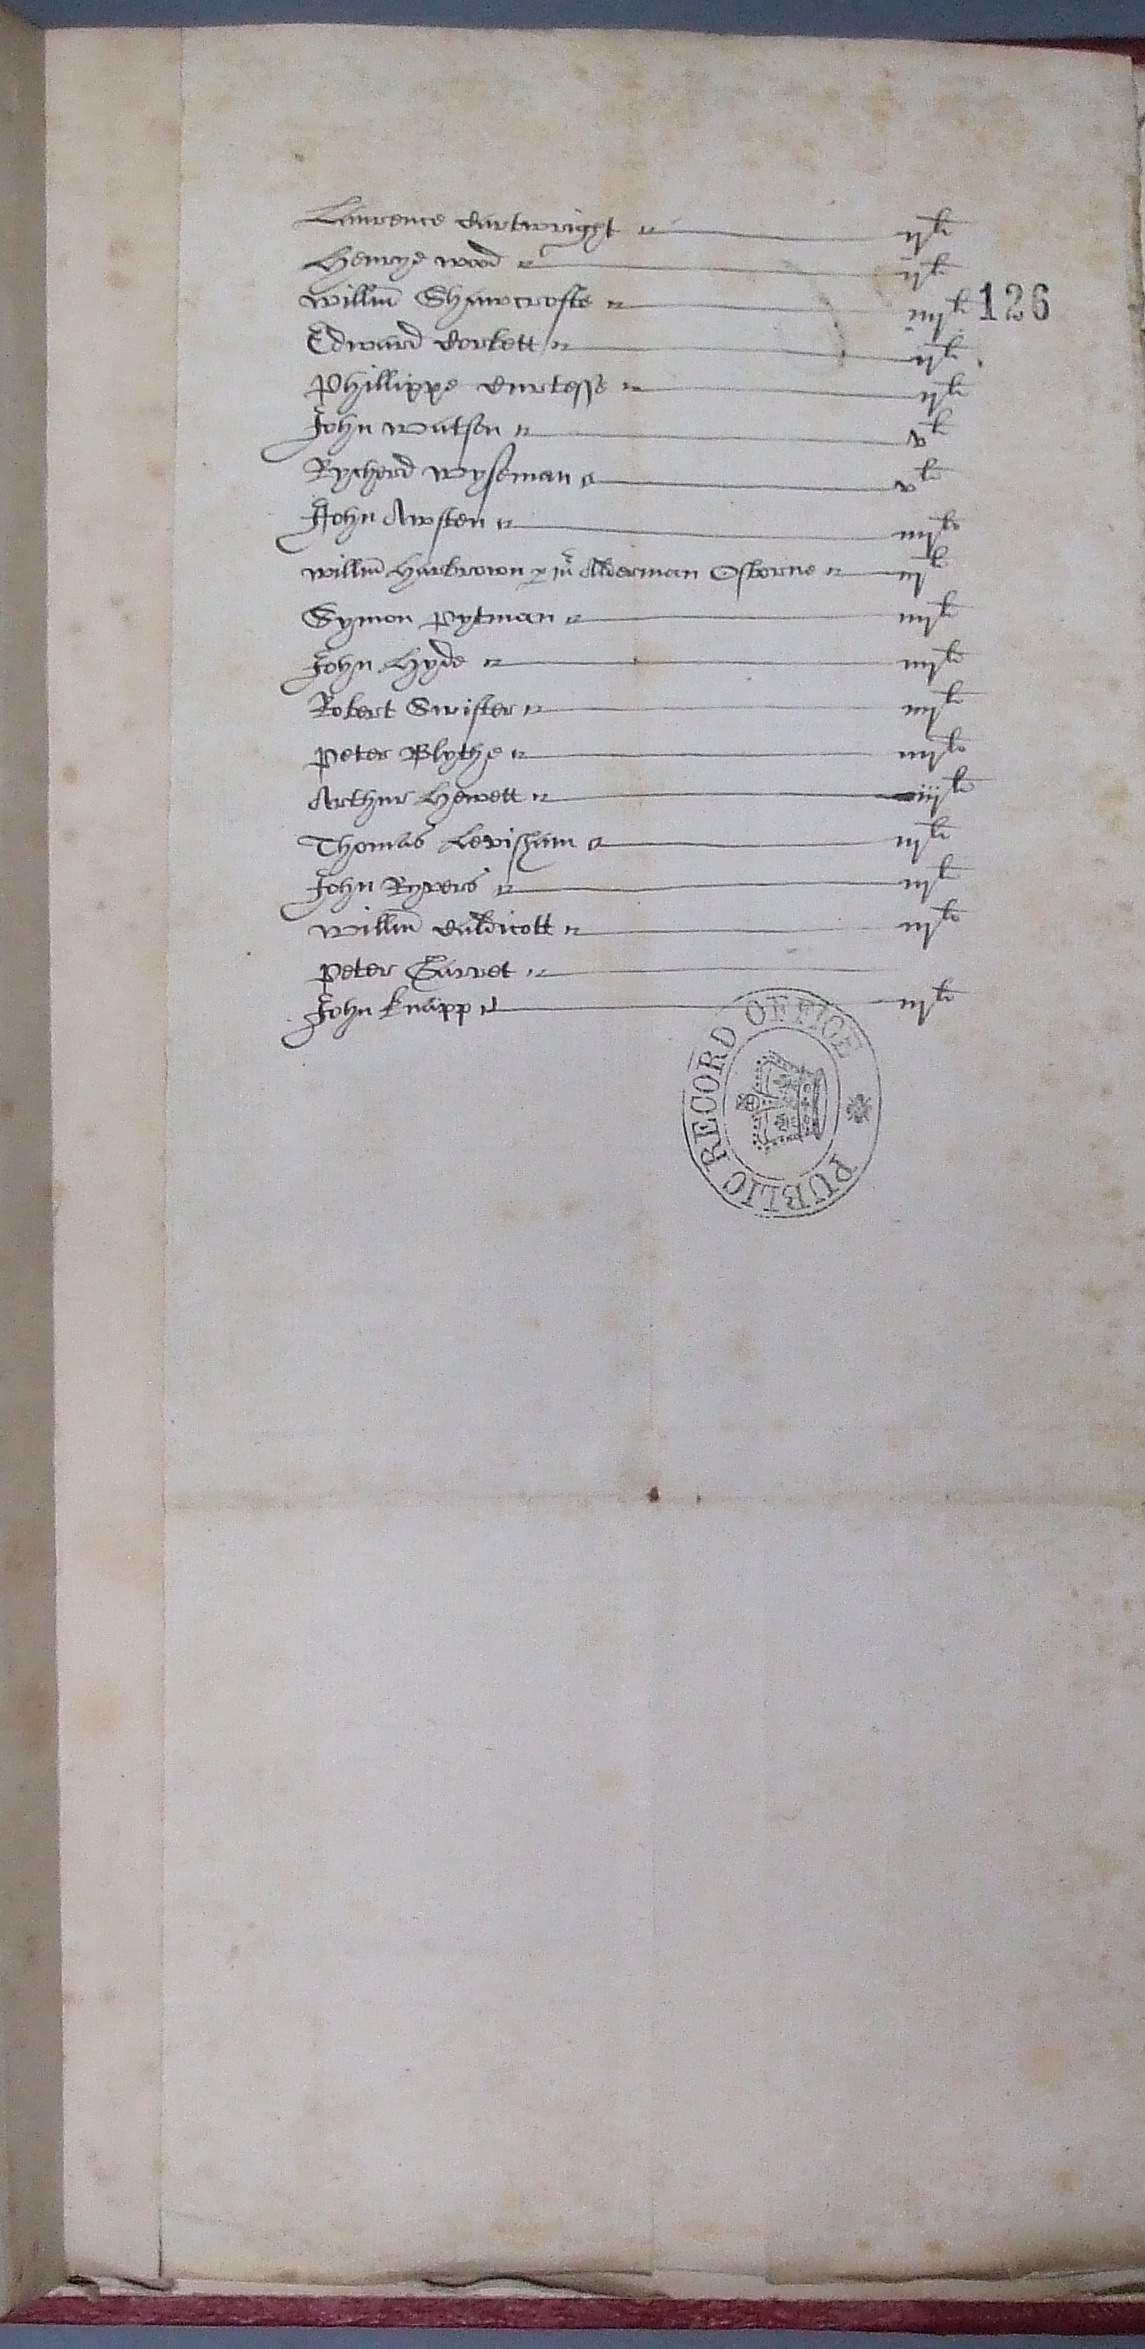 Laurence Cartwright ijli
Henrye Wood ijli
Willm Shawcrofte iiijli 126
Edward Corbett ijli
Phillippe Curtesse ijli
John Watson vli
Rychard Wyseman vli
John Awsten iiijli
Willm Harbrown p mr Alderman Osborne iijli
Symon Pytman iiijli
John Hyde iiijli
Robert Swifter iiijli
Peter Blythe iiijli
Arthur Hewett iiijli
Thomas Levisham iijli
John Ryvers iijli
Willm Caldicott iijli
Peter Garret
John Knapp iijli
PUBLIC RECORD OFFICE